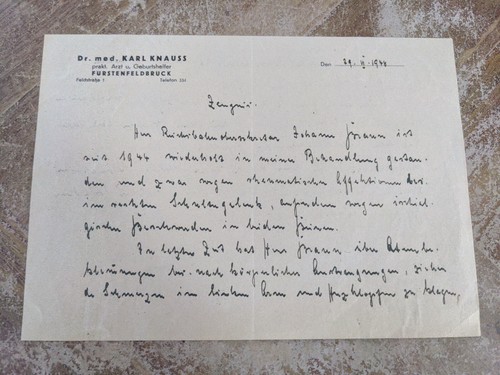 Dr. med. KARL KNAUSS
prakt. Arzt u. Geburtshelfer
FÜRSTENFELDBRUCK
Feldstraße 1 Telefon
Den 29. 1948
Zeugnis.
Herr Johann ist
seit 1944 wiederholt in meiner Behandlung gestan-
den und zwar wegen rheumatischer Affektionen bes.
im rechten Schultergelenk, außerdem wegen
Beschwerden in beiden
In letzter Zeit hat Herr über Atembe-
klemmungen bes. nach körperlichen Anstrengungen,
de Schmerzen im linken Arm und Herzklopfen zu klagen,